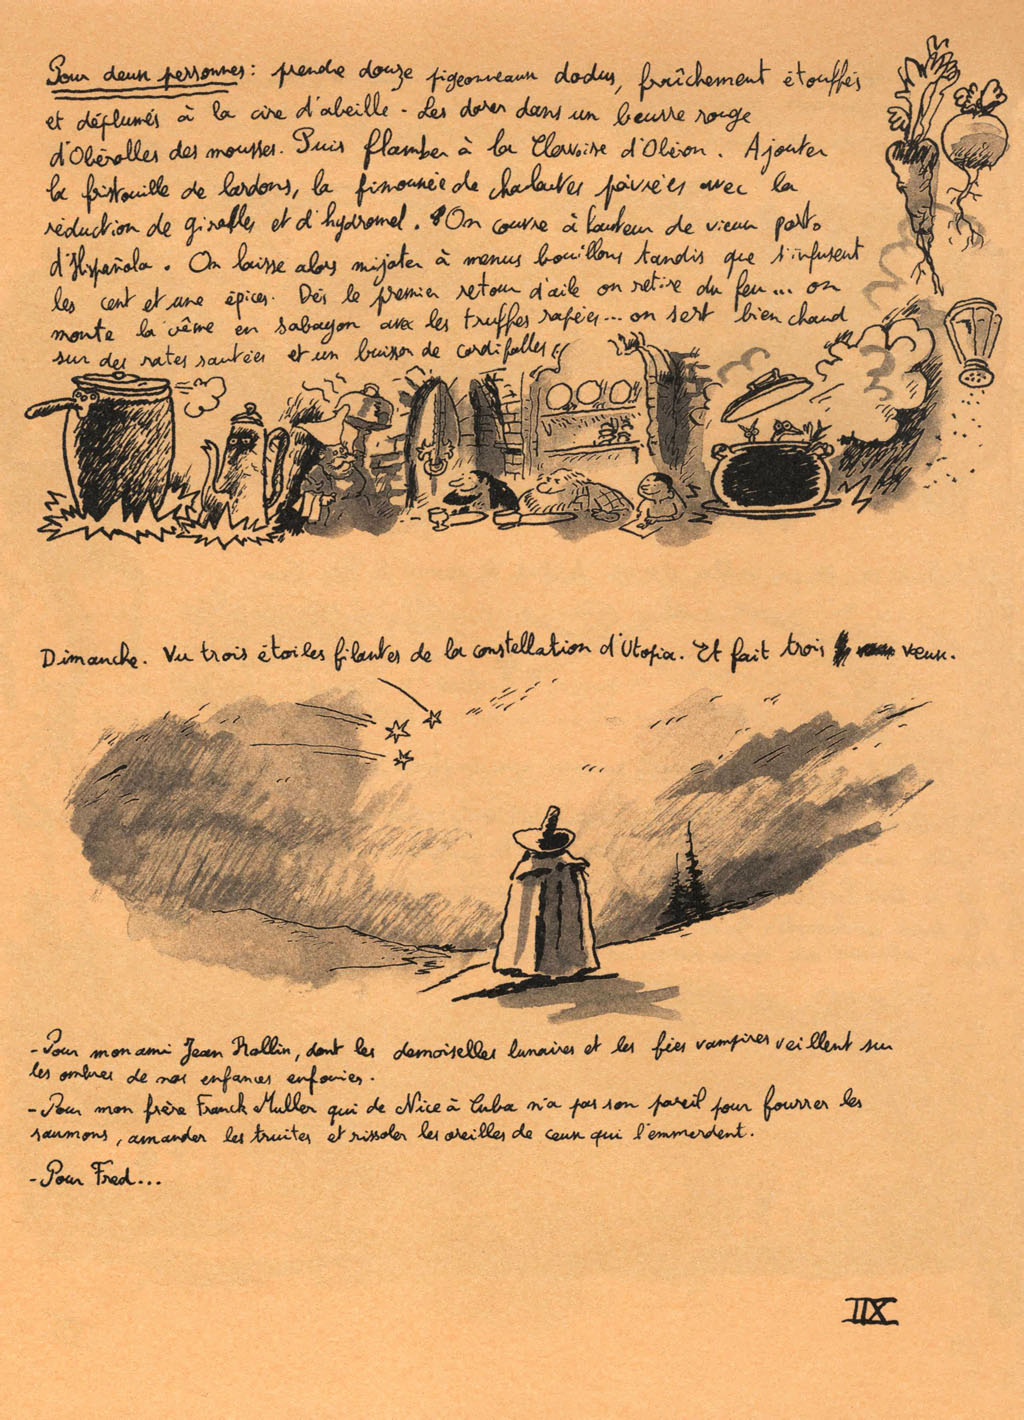 Pour deux personnes: prendre douze pigeonneaux dodus, fraîchement étouffés
et déplumés à la cire d'abeille - Les dorer dans un beurre rouge
d'Obérolles des mousses. Puis flamber à la Clervoise d'Obéron. Ajouter
la fristouille de lardons, la de poivrées avec la
réduction de girolles et d'hydromel. On couvre à hauteur de vieux porto
d'Hispañola. On laisse alors mijoter à menus bouillons tandis que s'infusent
les cent et une épices. Dès le premier retour d'aile on retire du feu... on
monte la crême en sabayon avec les truffes rapées... on sert bien chaud
sur des rates sautées et un buisson de cordifolles
Dimanche. Vu trois étoiles filantes de la constellation d'Utopia. Et fait trois veux.
- Pour mon ami Jean Rollin, dont les demoiselles lunaires et les fées vampires veillent sur
les ombres de nos enfances enfouies.
- Pour mon frère Franck Muller qui de Nice à Cuba n'a pas son pareil pour fourrer les
saumons, amander les truites et rissoler les oreilles de ceux qui l'emmerdent.
- Pour Fred...
IIX